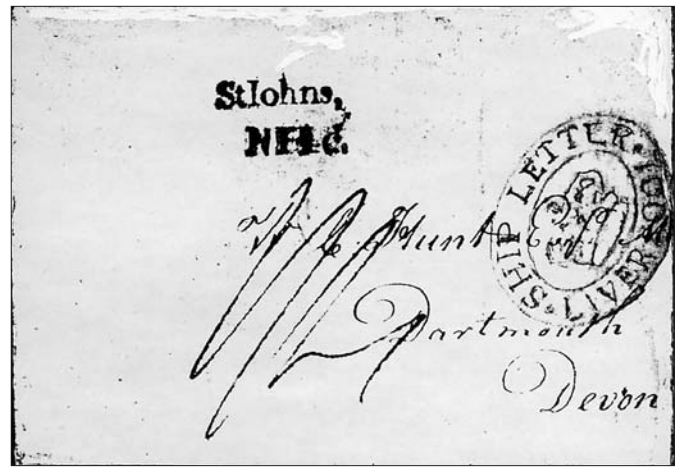 StIohns,
NFLd.
SHIP LETTER · LIVERPOOL
Hunt
Dartmouth
Devon